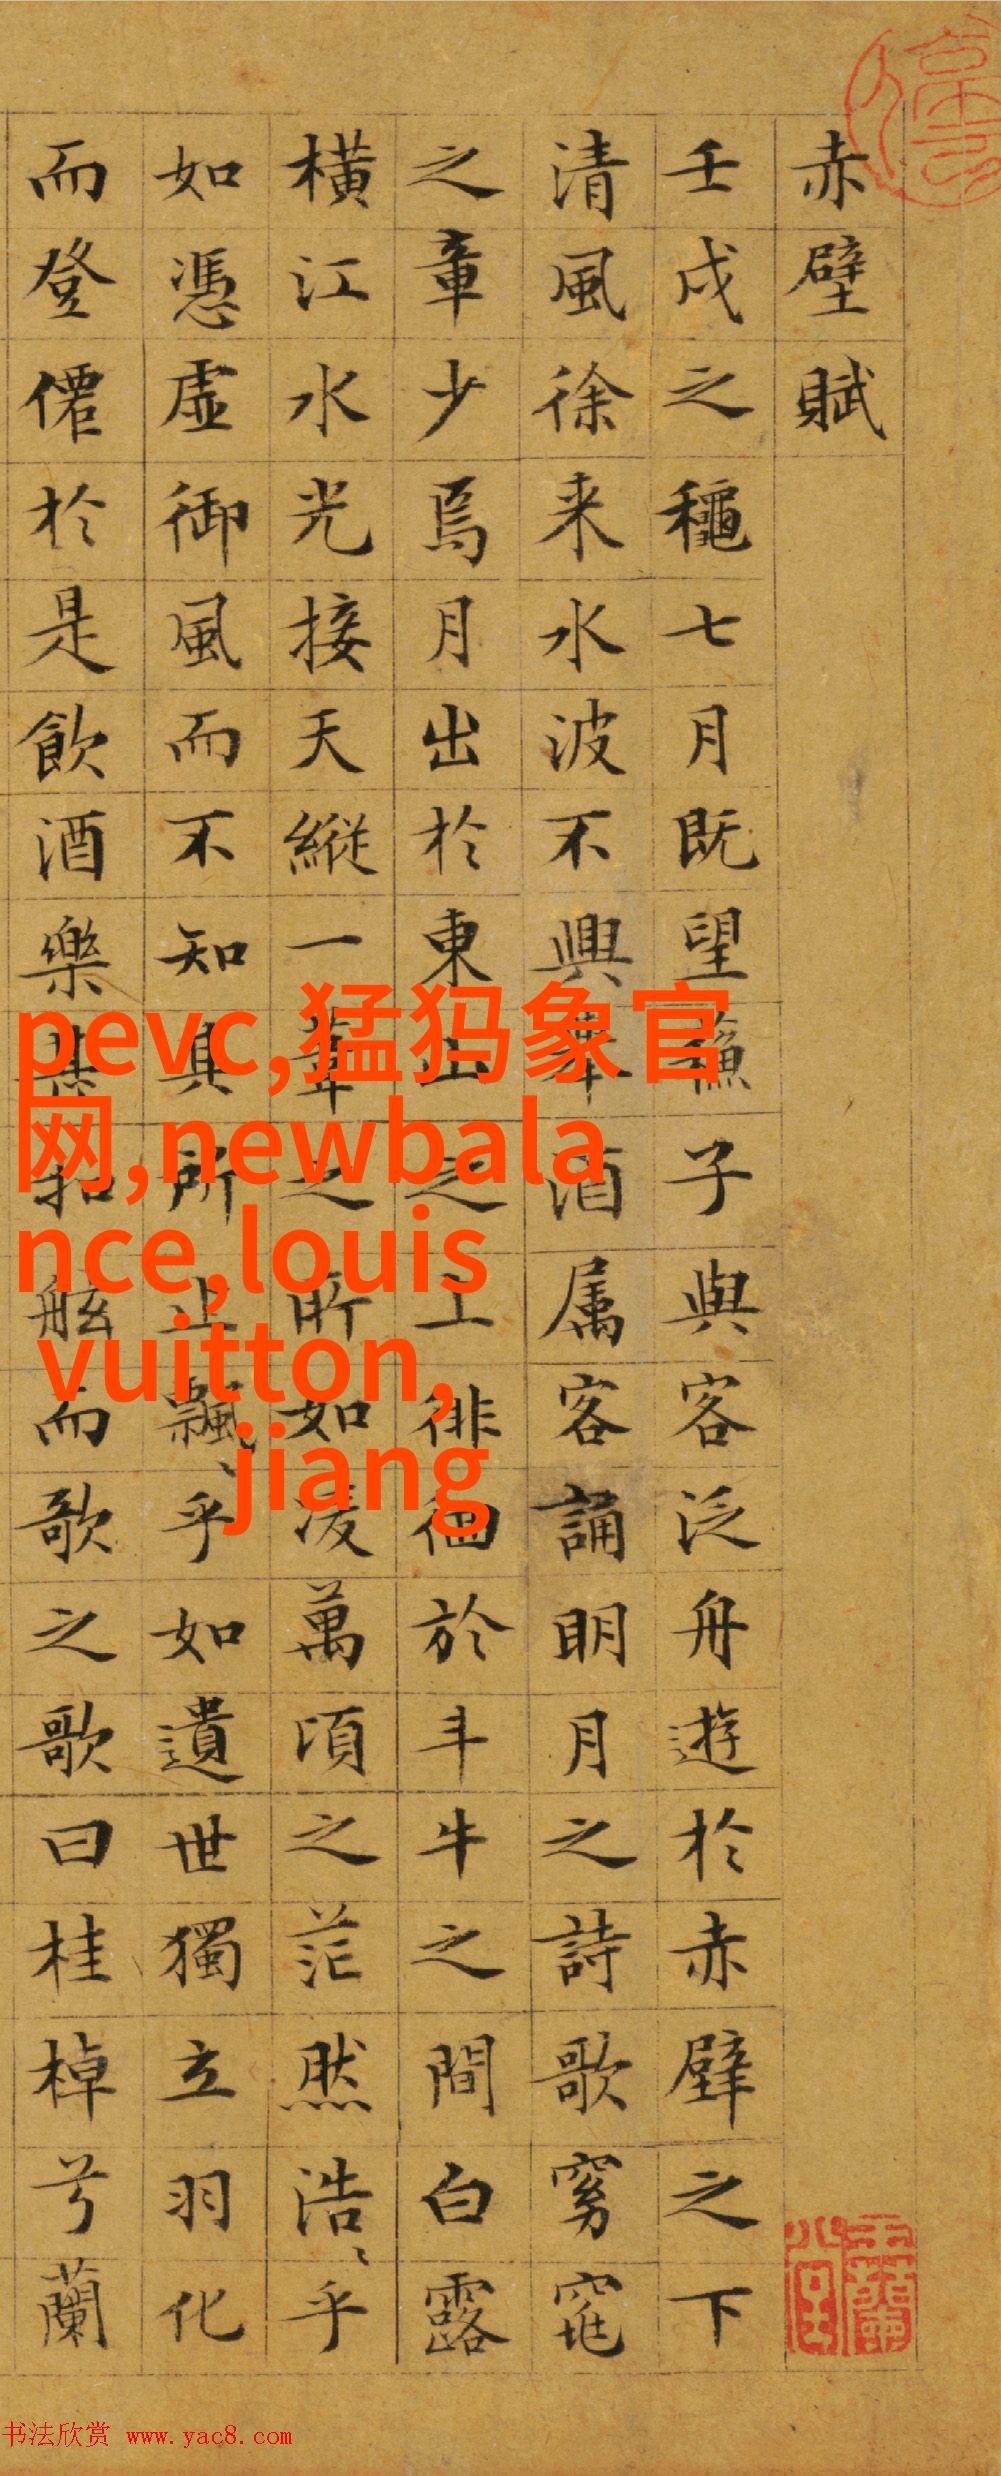 赤壁賦
壬戌之穐七月既望蘓子與客泛舟遊於赤壁之下
清風徐来水波不興舉酒属客誦明月之詩歌窈窕
之章少焉月出於東山之上徘徊於斗牛之間白露
橫江水光接天縱一葦之所如凌萬頃之茫然浩〻乎
如憑虛御風而不知其所止飄〻乎如遺世獨立羽化
而登僊於是飲酒樂甚扣舷而歌之歌曰桂棹兮蘭
pevc,猛犸象官
网,newbala
nce,louis
vuitton,
jiang
书法欣赏 www.yac8.com